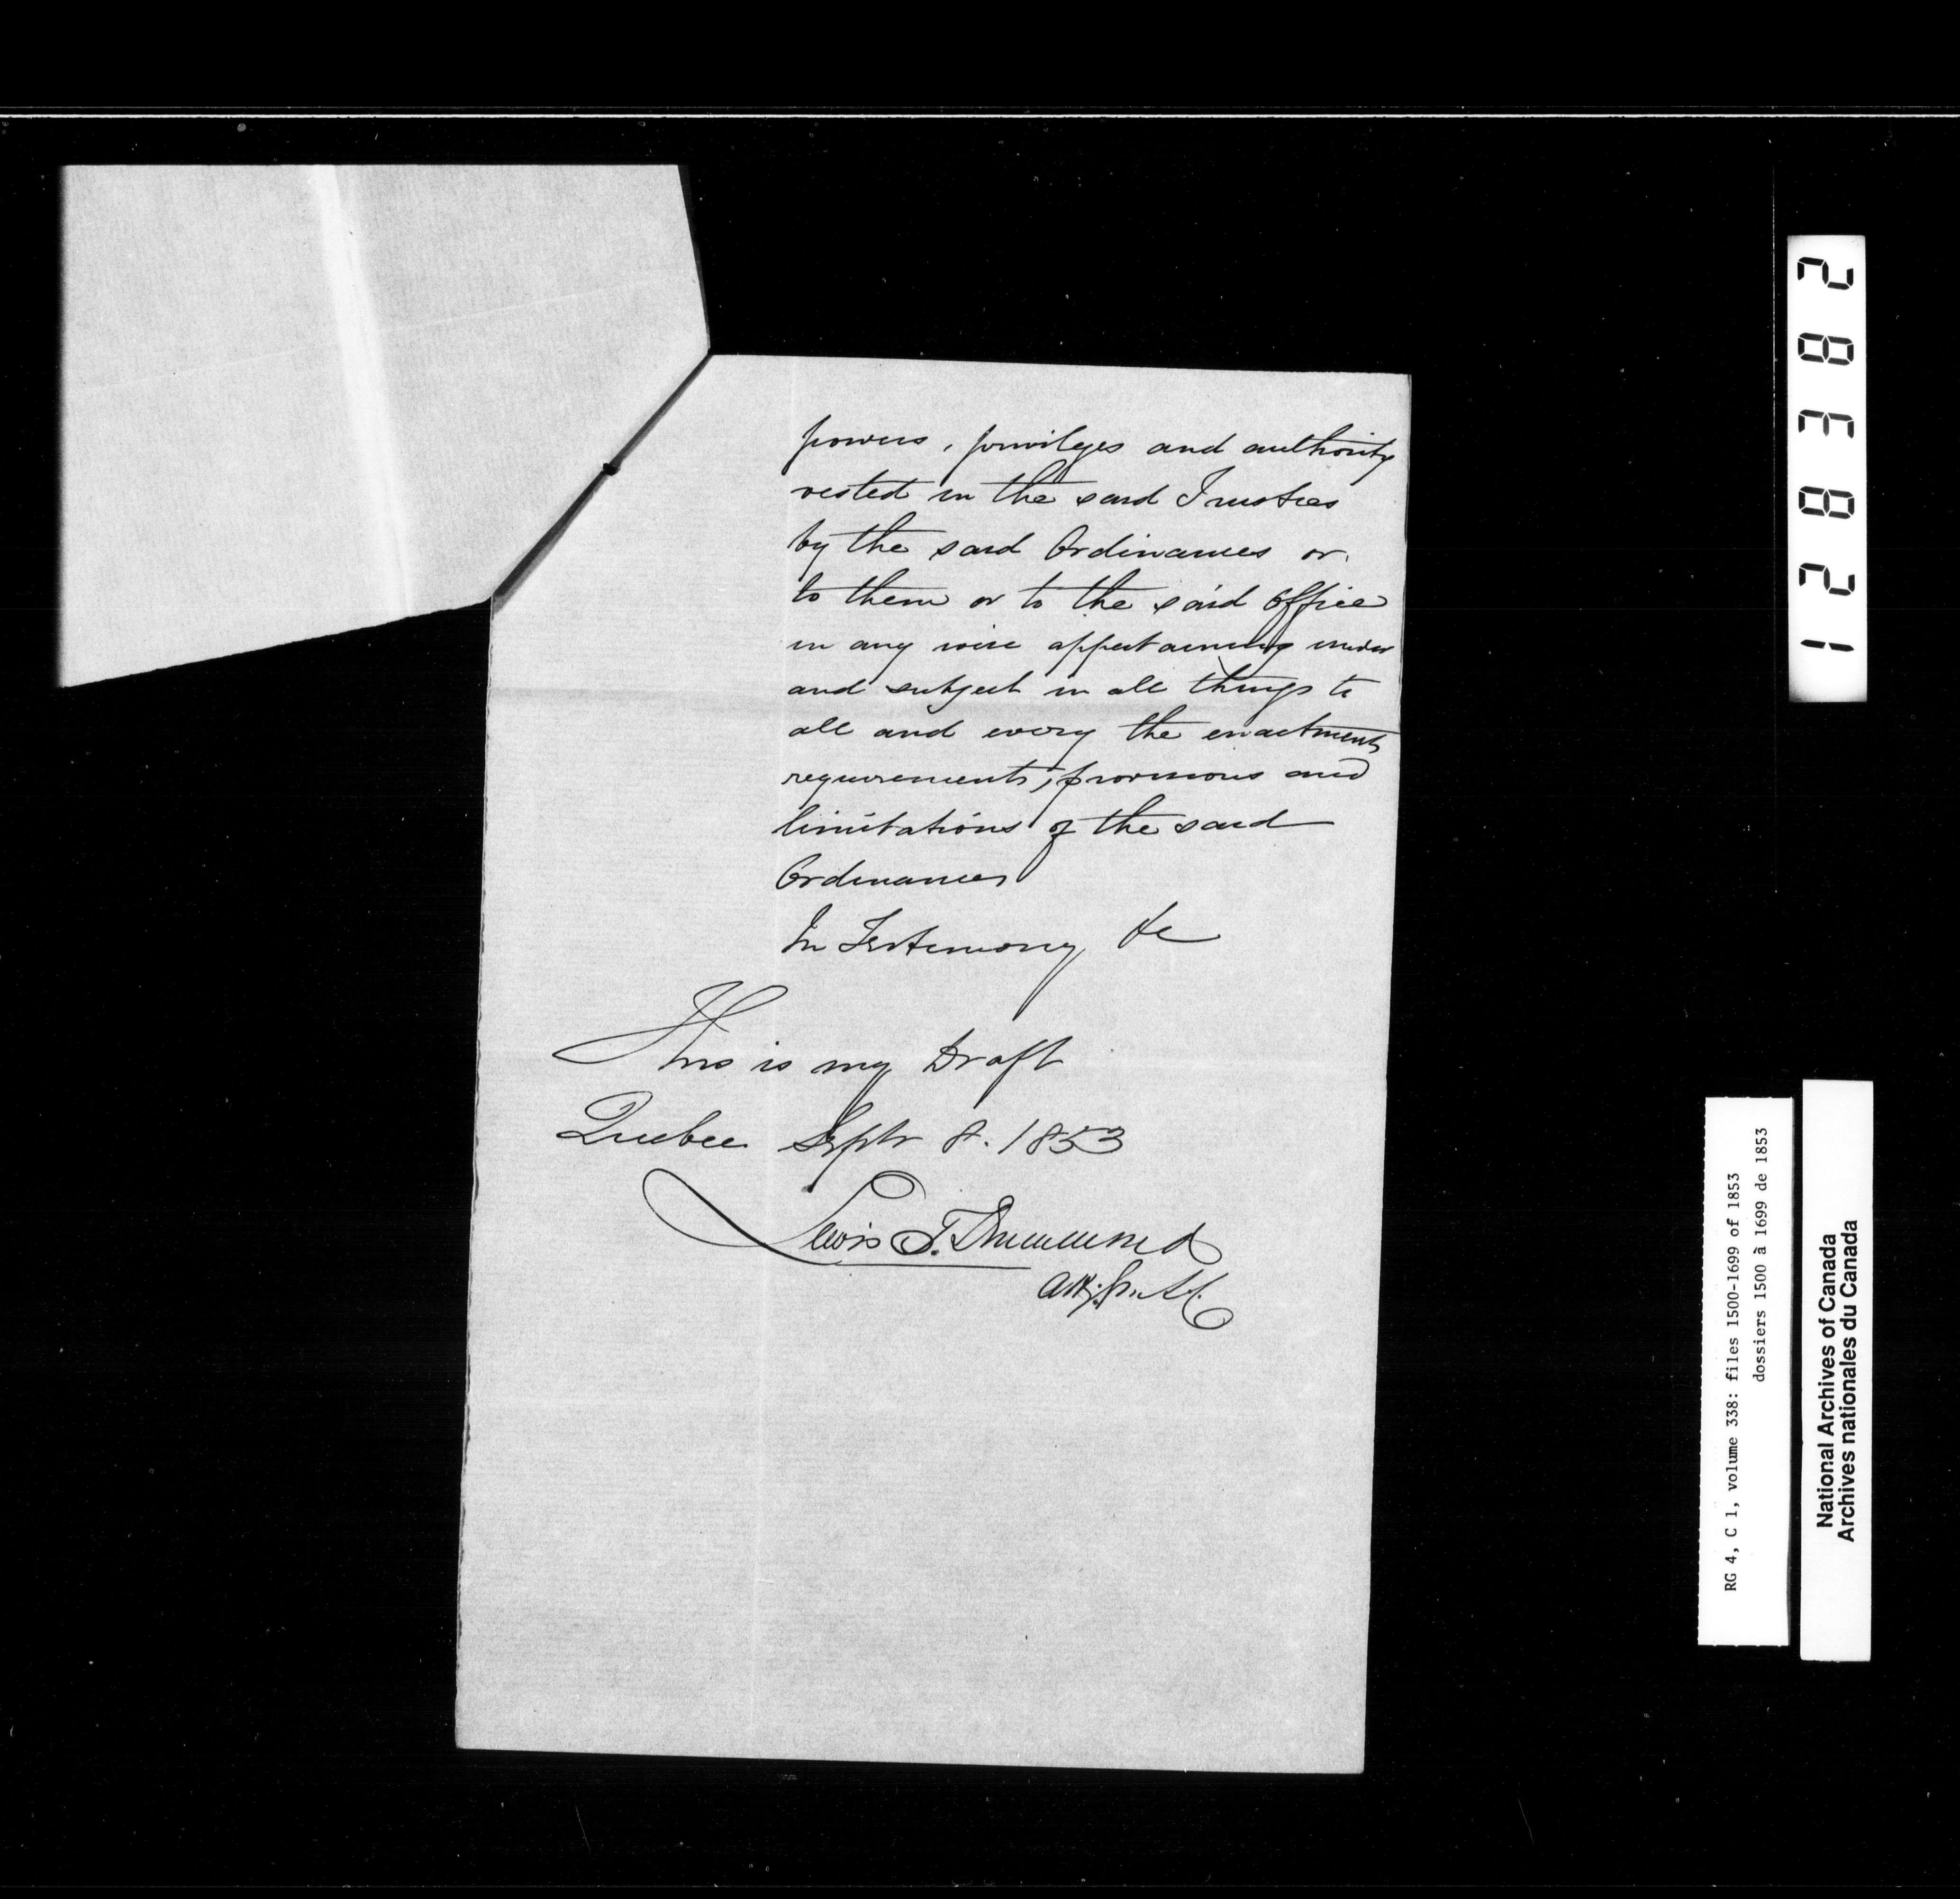 powers, privileges and authority
vested in the said Trustees
by the said Ordinances or
to them or to the said office
in any wise appertaining under
and subject in all things to
all and every the enactments
requirements, provisions and
limitations of the said
Ordinances
In Testimony &c
This is my Draft
Quebec Septr 8. 1853
Lewis T. Drummond
Atty. Gnl.
128382
RG 4, C 1, volume 338: files 1500-1699 of 1853
dossiers 1500 à 1699 de 1853
National Archives of Canada
Archives nationales du Canada